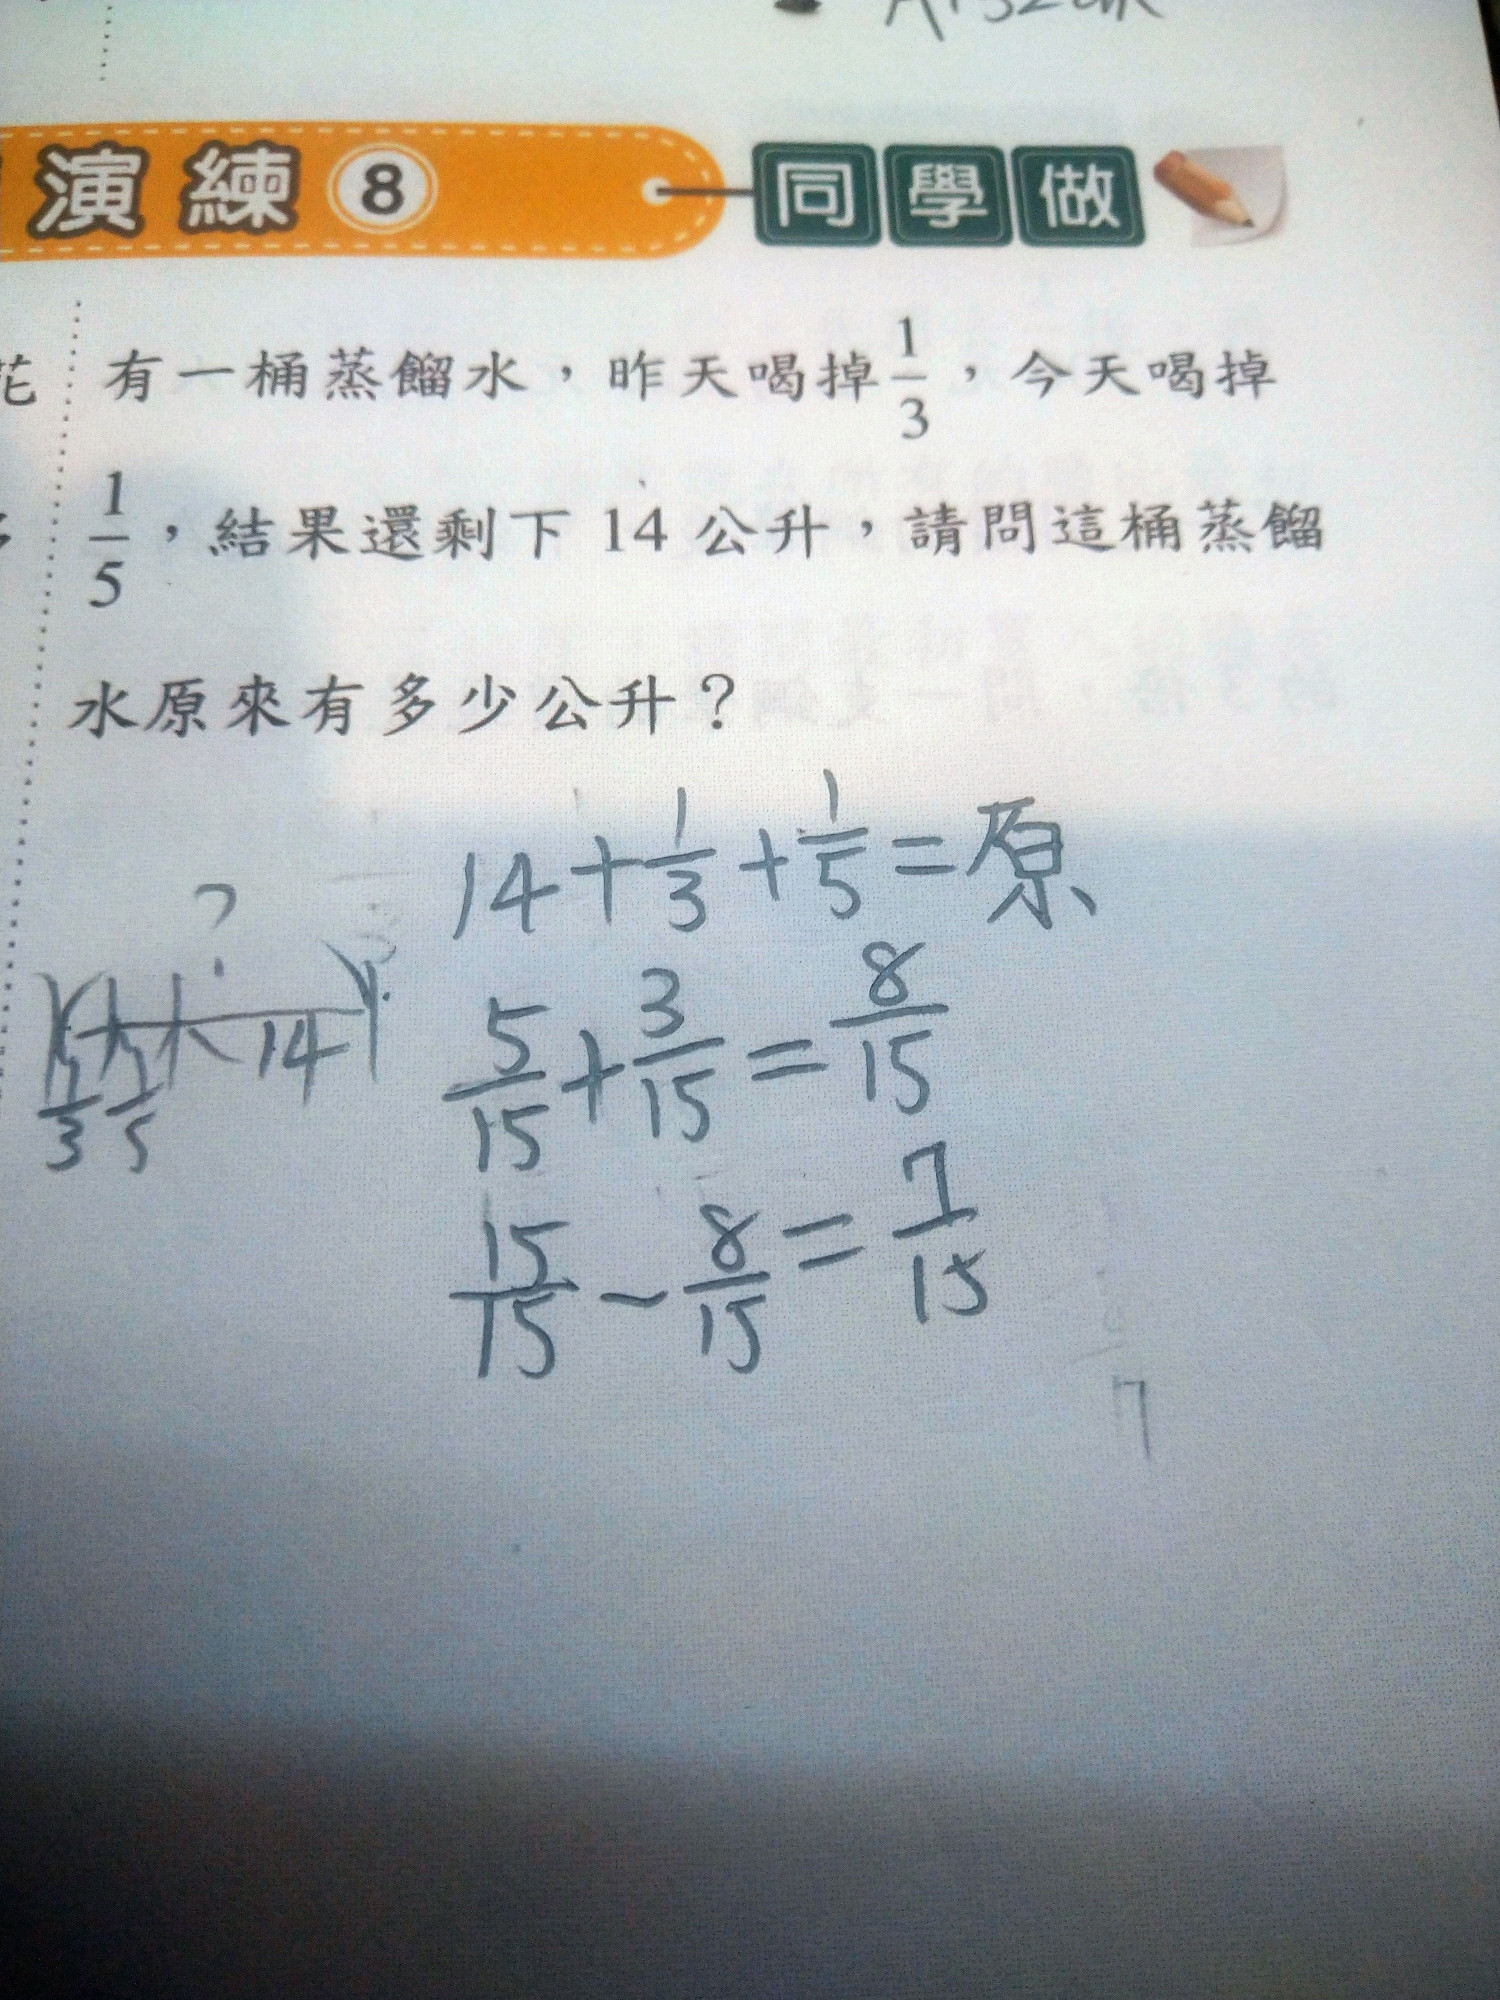 演練 8 同學做
花
有一桶蒸餾水，昨天喝掉1/3，今天喝掉
1/5，結果還剩下 14 公升，請問這桶蒸餾
水原來有多少公升？
14+1/3+1/5=原
?
14
1/3 1/5
5/15+3/15=8/15
15/15-8/15=7/15
7